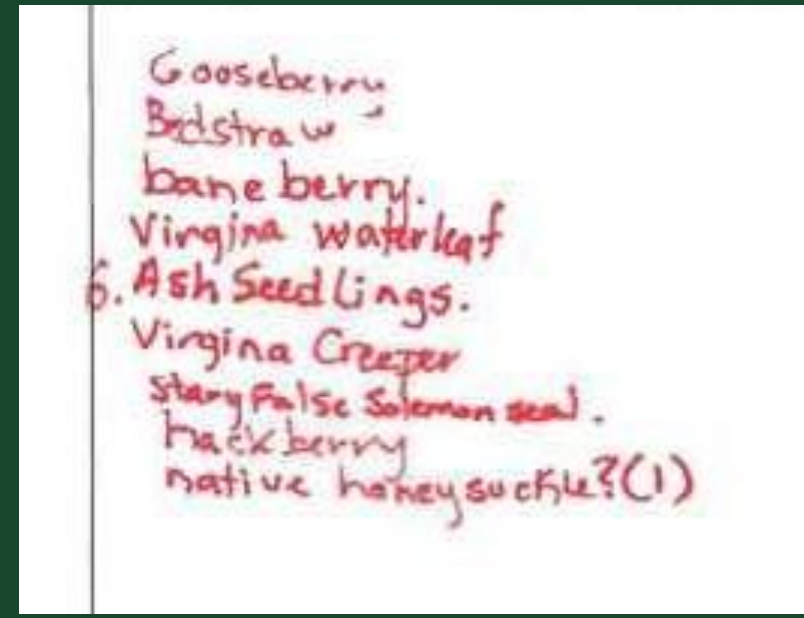 Gooseberry
Bedstraw
baneberry.
Virgina waterleaf
6. Ash Seedlings.
Virgina Creeper
stary False Solemon seal.
hackberry
native honeysuckle?(1)